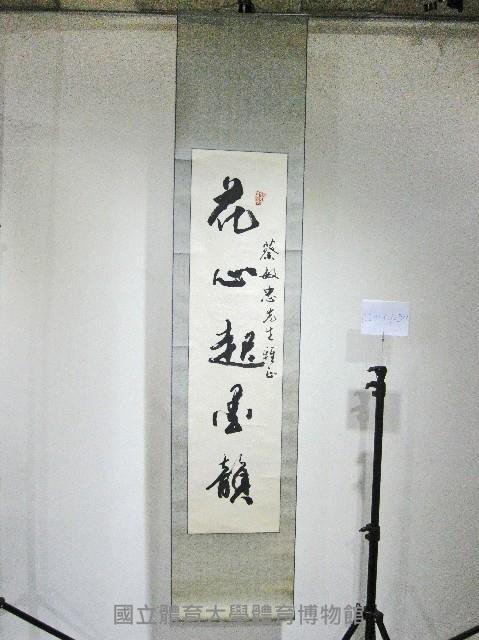 蔡敏忠先生雅正
花心起墨韻
國立體育大學體育博物館